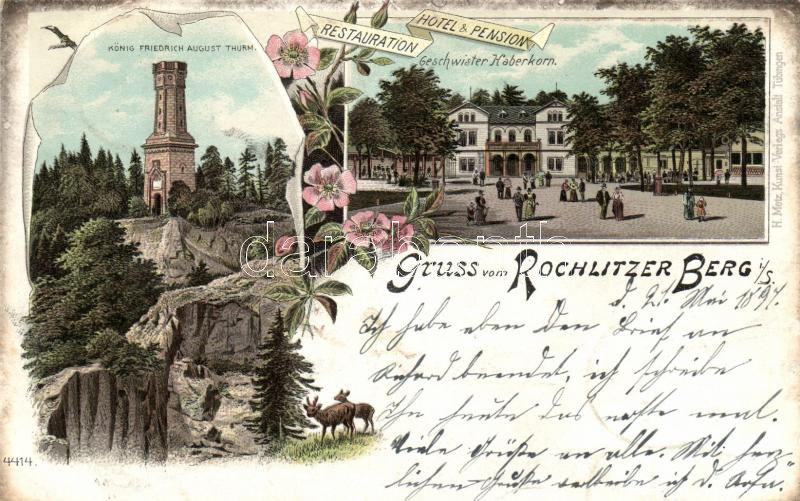 KÖNIG FRIEDRICH AUGUST THURM.
RESTAURATION
HOTEL & PENSION
Geschwister Haberkorn.
H. Metz, Kunst-Verlags-Anstalt Tübingen
darabanth
Gruss vom ROCHLITZER BERG i/S.
d. 21. Mai 1897.
Ich habe eben den Brief an
Richard beendet, ich schreibe
Ihn heute das nächste mal.
Viele Grüße an alle. Mit herz-
lichen Gruße verbleibe ich d.
4414.